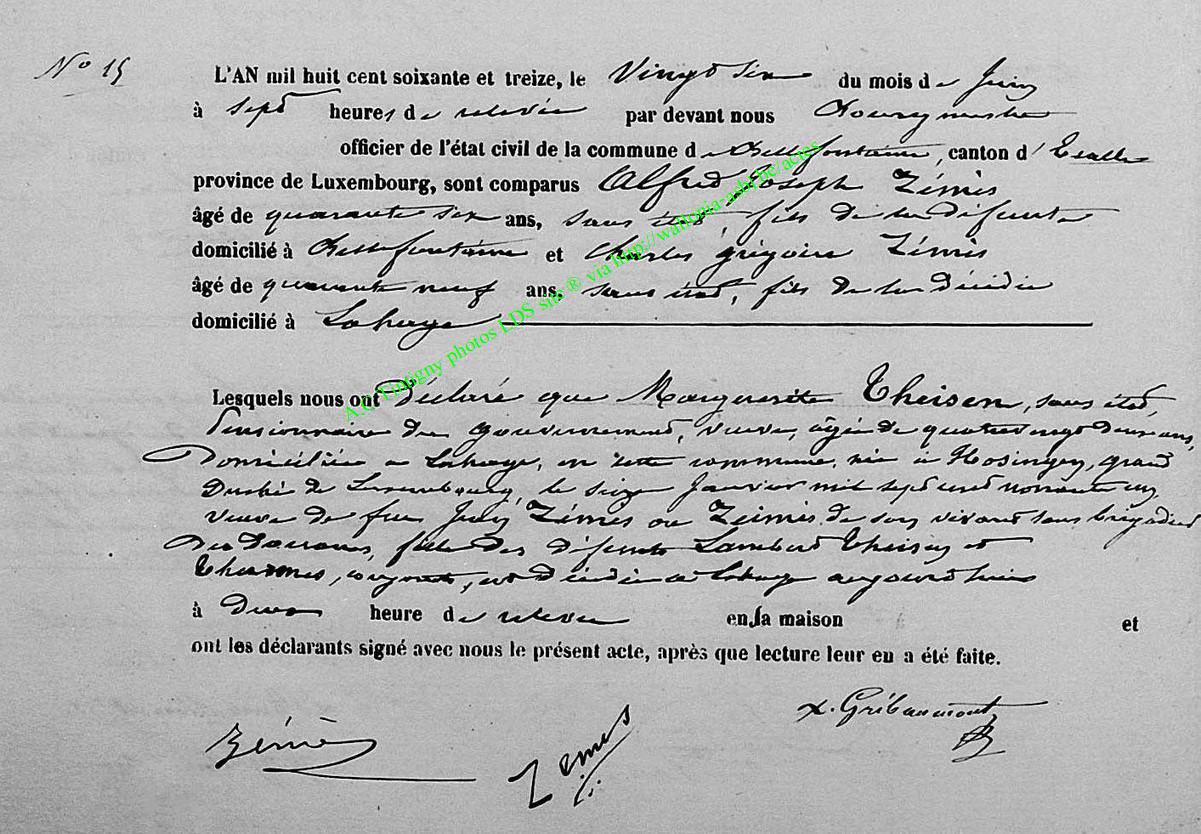 No 15
L'AN mil huit cent soixante et treize, le Vingt six du mois de Juin
à sept heures de relevée par devant nous Bourgmestre
officier de l'état civil de la commune de Bellefontaine, canton d'Etalle
province de Luxembourg, sont comparus Alfred Joseph Zémis
âgé de quarante six ans, sans état, fils de la défunte
domicilié à Bellefontaine et Charles grégoire Zémis
âgé de quarante neuf ans, sans état, fils de la décédée
domicilié à Lahage
Lesquels nous ont Déclaré que Marguerite Theisen, sans état,
Pensionnaire du gouvernement, veuve, âgée de quatre vingt deux ans,
Domiciliée à Lahage, en cette commune, née à Hosingen, grand
Duché de Luxembourg, le seize Janvier mil sept cent nonante un
veuve de feu Jean Zémis ou Zeimis de son vivant sous brigadier
des Douanes, fille des défunts Lambert Theisen et
conjoints, est décédée à Lahage aujourd'hui
à Deux heure de relevée en la maison et
ont les déclarants signé avec nous le présent acte, après que lecture leur en a été faite.
Zémis
Zémis
x. Gribaumont
A.C. Tintigny photos LDS site ® via http://wallonia-asbl.be/actes